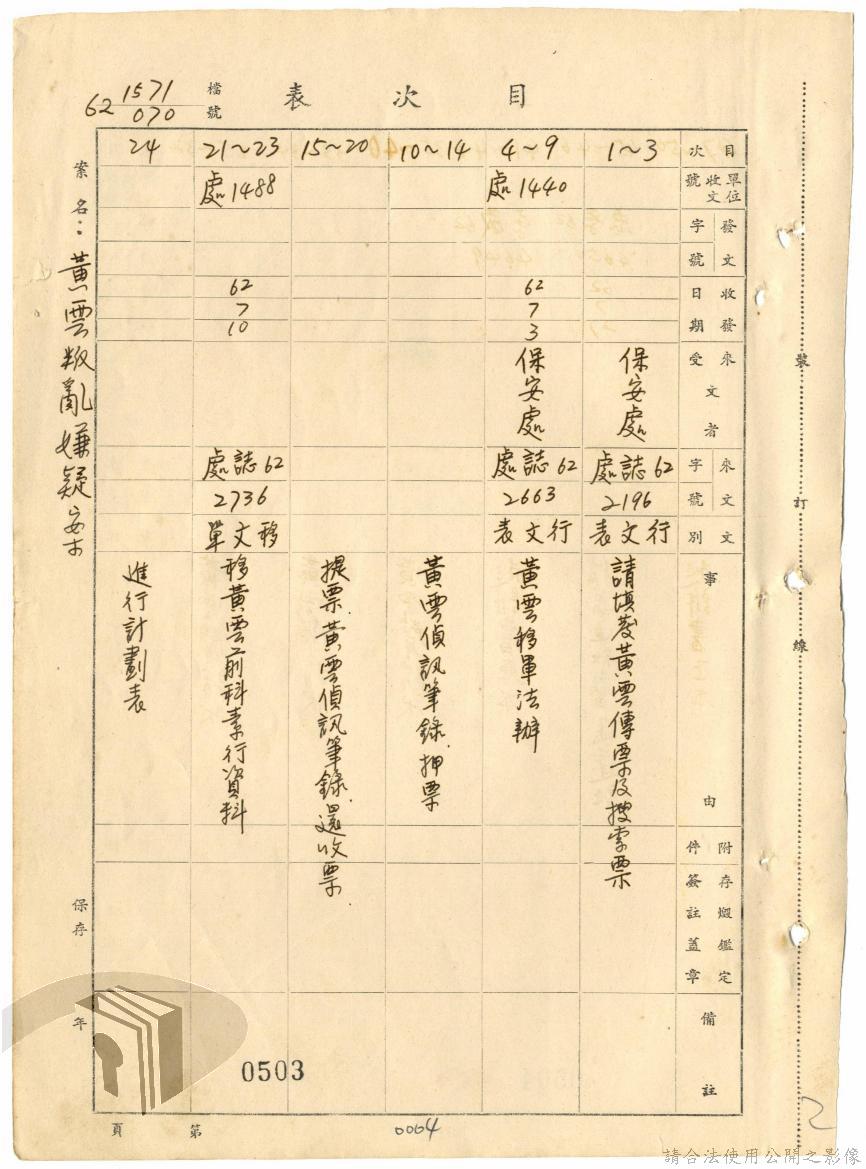 目次表
檔號
62 1571/070
目次
單位收文號
發文字號
收發日期
來文者受
來文字號
文別
事由
附件
存燬鑑定簽註蓋章
備註
1～3
保安處
處誌62
2196
行文表
請填發黃雲傳票及搜索票
4～9
處1440
62
7
3
保安處
處誌62
2663
行文表
黃雲移軍法辦
10～14
黃雲偵訊筆錄.押票
15～20
提票.黃雲偵訊筆錄.還收票.
21～23
處1488
62
7
10
處誌62
2736
移文單
移黃雲前科素行資料
24
進行計劃表
案名：黃雲叛亂嫌疑案
保存 年
第 頁
0503
0004
裝訂線
2
請合法使用公開之影像